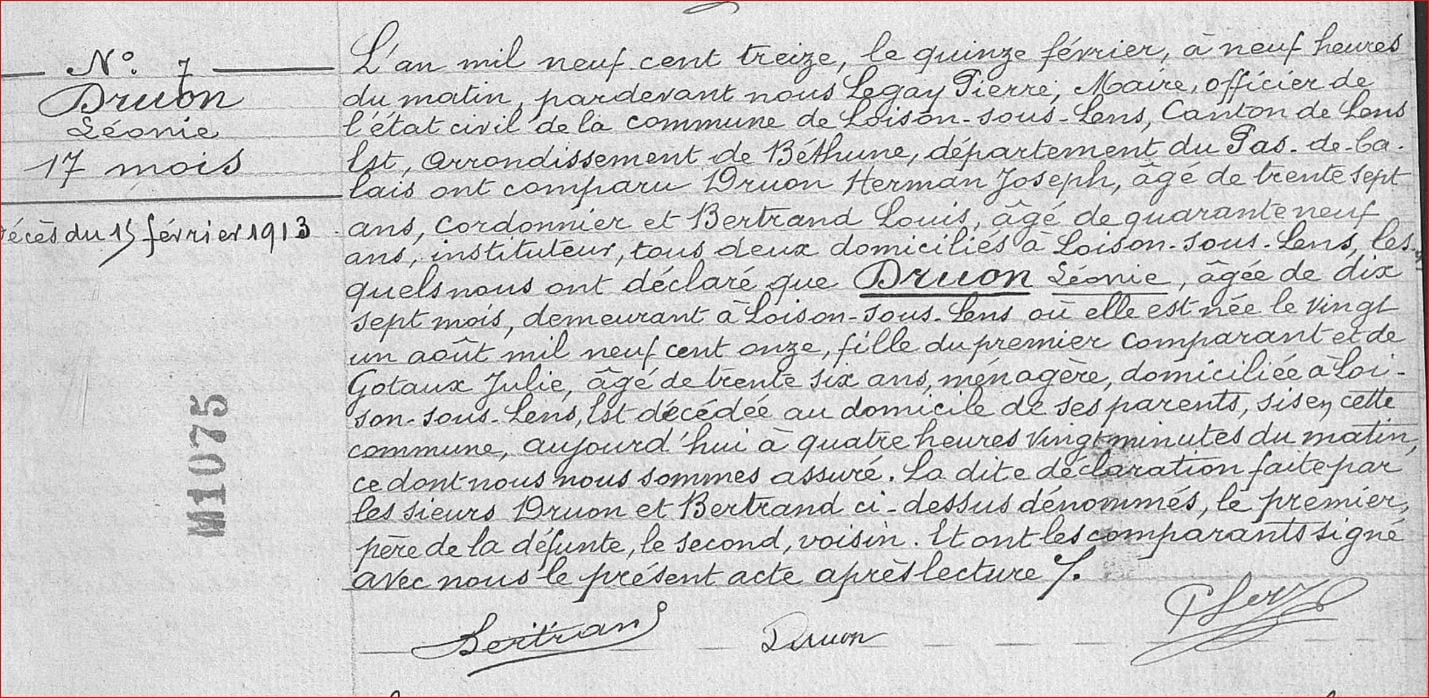 N°. 7
Druon
Léonie
17 mois
Décès du 15 février 1913
M1075
L'an mil neuf cent treize, le quinze février, à neuf heures
du matin, pardevant nous Legay Pierre, Maire, officier de
l'état civil de la commune de Loison-sous-Lens, Canton de Lens
Est, arrondissement de Béthune, département du Pas-de-Ca-
lais ont comparu Druon Herman Joseph, âgé de trente sept
ans, cordonnier et Bertrand Louis, âgé de quarante neuf
ans, instituteur, tous deux domiciliés à Loison-sous-Lens, les-
quels nous ont déclaré que Druon Léonie, âgée de dix
sept mois, demeurant à Loison-sous-Lens où elle est née le vingt
un août mil neuf cent onze, fille du premier comparant et de
Gotaux Julie, âgé de trente six ans, ménagère, domiciliée à Loi-
son-sous-Lens, Est décédée au domicile de ses parents, sis en cette
commune, aujourd'hui à quatre heures vingt minutes du matin,
ce dont nous nous sommes assuré. La dite déclaration faite par
les sieurs Druon et Bertrand ci-dessus dénommés, le premier,
père de la défunte, le second, voisin. Et ont les comparants signé
avec nous le présent acte après lecture /.
Bertrand Druon